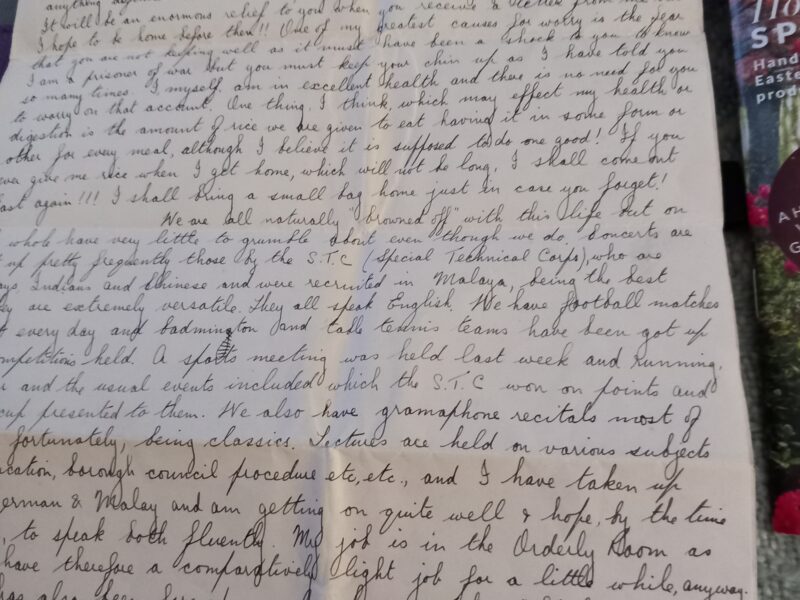 anything
It will be an enormous relief to you when you receive a letter from me
I hope to be home before then!! One of my greatest causes for worry is the fear
that you are not keeping well as it must have been a shock to you to know
I am a prisoner of war but you must keep your chin up as I have told you
so many times. I myself am in excellent health and there is no need for you
to worry on that account. One thing, I think, which may effect my health or
digestion is the amount of rice we are given to eat having it in some form or
other for every meal, although I believe it is supposed to do one good! If you
ever give me rice when I get home, which will not be long, I shall come out
East again!!! I shall bring a small bag home just in case you forget!
We are all naturally "browned off" with this life but on
whole have very little to grumble about even though we do. Concerts are
up pretty frequently those by the S.T.C (Special Technical Corps), who are
Indians and Chinese and were recruited in Malaya, being the best
are extremely versatile. They all speak English. We have football matches
every day and badmington and table tennis teams have been got up
competitions held. A sports meeting was held last week and running,
and the usual events included which the S.T.C won on points and
cup presented to them. We also have gramaphone recitals most of
fortunately, being classics. Lectures are held on various subjects
borough council procedure etc, etc., and I have taken up
German & Malay and am getting on quite well & hope, by the time
, to speak both fluently. My job is in the Orderly Room as
have therefore a comparatively light job for a little while, anyway.
also been
SP
Hand
Easte
prod
A H
G